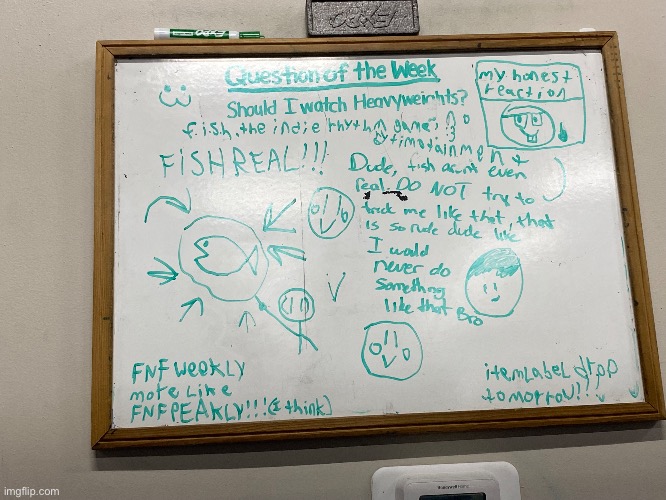 EXPO
EXPO
Question of the Week
my honest
reaction
Should I watch Heavyweights?
fish. the indie rhythm game :3
by timotainment
FISH REAL!!!
Dude, fish arent even
real. DO NOT try to
trick me like that, that
is so rude dude like
I would
never do
something
like that Bro
FNF weekly
more like
FNF PEAKLY!!! (I think)
itemLabel drop
tomorrow!!
Honeywell Home
imgflip.com